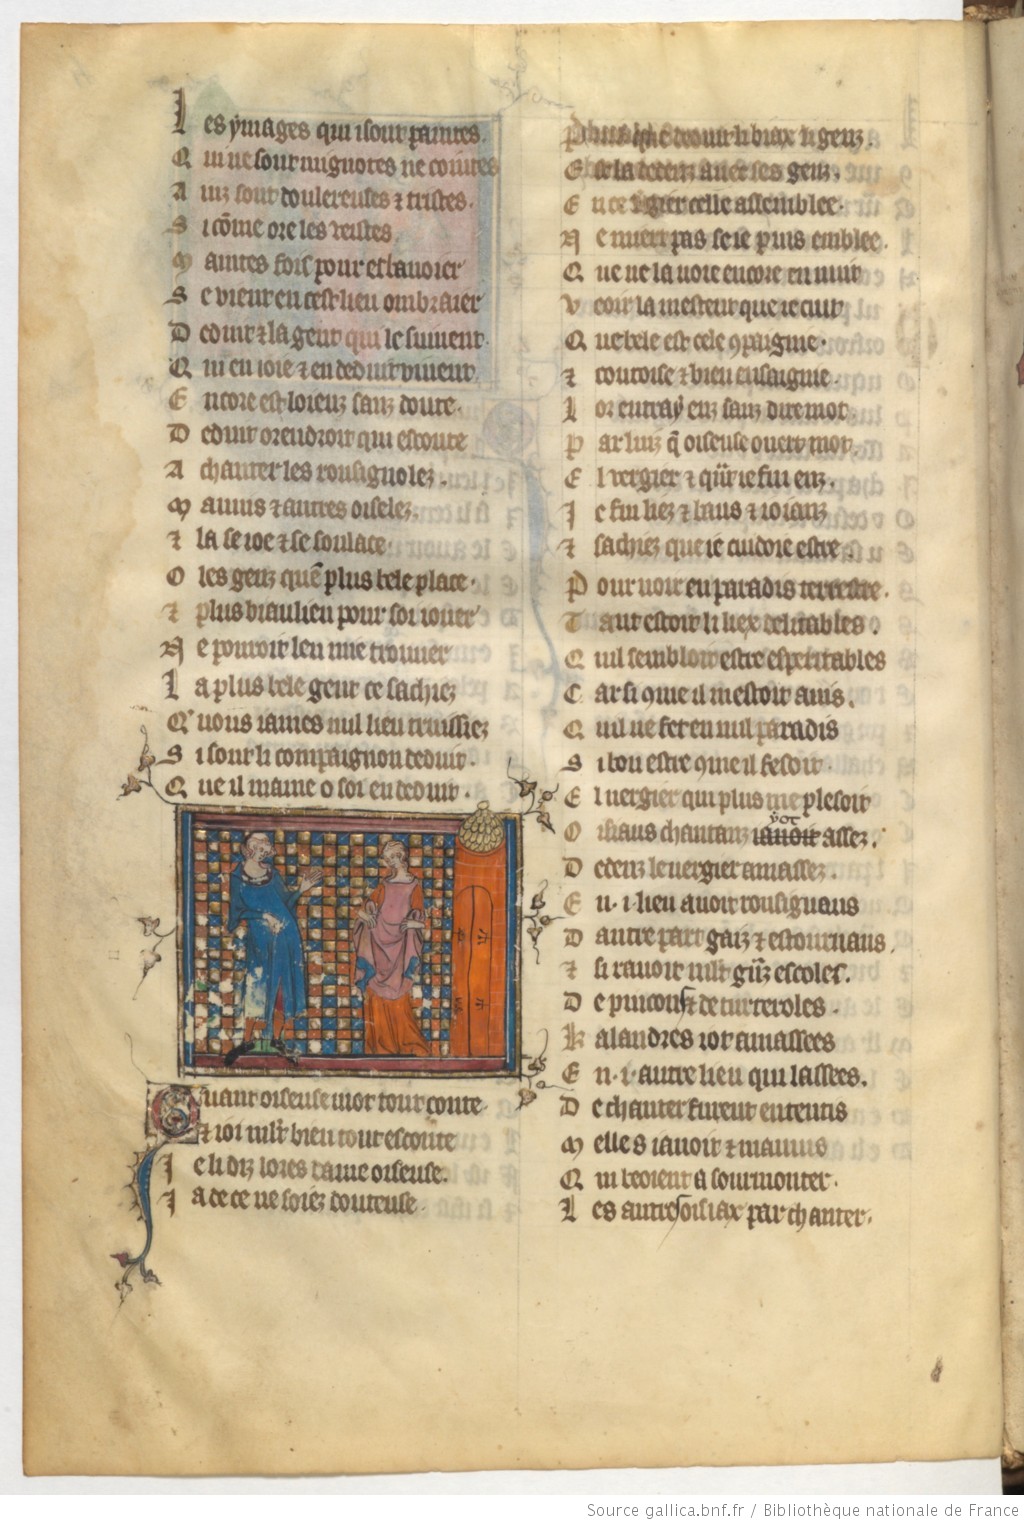 Les ymages qui i sont paintes.
Qui ne sont mignotes ne cointes
Ainz sont doulereuses ⁊ tristes.
Si cōme ore les veistes
Maintes fois pour esbanoier
Se vient en cest lieu ombraier
Deduit ⁊ la gent qui le suiuent.
Qui en ioie ⁊ en deduit viuent
Encore est lorenz sanz doute.
Deduit orendroit qui escoute
A chanter les rousignolez.
Mauuis ⁊ autres oiselez.
⁊ la se ioe ⁊ se soulace.
O les genz quē plus bele place.
⁊ plus biau lieu pour soi iouer
Ne pouroit len mie trouuer
La plus bele gent ce sachiez
Q' vous iames nul lieu truissiez
Si sont li compaignon deduit.
Que il maine o soi en deduit.
Quant oiseuse mot tout conte.
⁊ ioi mlt bien tout escoute
Je li diz lores dame oiseuse.
Ja de ce ne soiez douteuse.
Puis que deduit li biax li genz.
Est la dedenz auec ses genz.
En ce vgier celle assemblee.
Ne miert pas se ie puis emblee.
Que ne la uoie encore en nuit
Veoir la mesteut que ie cuit
Que bele est cele ꝯpaignie.
⁊ cortoise ⁊ bien ensaignie.
Lor entray enz sanz dire mot.
Par luiz q̄ oiseuse ouert mot.
El vergier ⁊ qñt ie fui enz.
Je fui liez ⁊ baus ⁊ ioianz
⁊ sachiez que ie cuidoie estre.
Pour uoir en paradis terrestre.
Tant estoit li liex delitables.
Quil sembloit estre esperitables
Car si ꝯme il mestoit auis.
Quil ne fet en nul paradis
Si bon estre ꝯme il fesoit.
El uergier qui plus me plesoit
yot
Oisiaus chantanz iauoit assez.
Dedenz le vergier amassez.
En .i. lieu auoit rousignaus
Dautre part gaiz ⁊ estournaus.
⁊ si rauoit mlt gñz escoles.
De pincons ⁊ de turteroles.
Kalandres iot amassees
En .i. autre lieu qui lassees.
De chanter furent ententis
Melles iauoit ⁊ mauuis
Qui beoient a sourmonter.
Les autres oisiax par chanter.
Source gallica.bnf.fr / Bibliothèque nationale de France